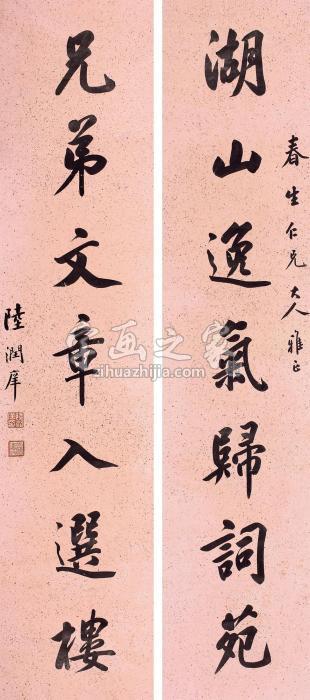 春生仁兄大人雅正
湖山逸氣歸詞苑
兄弟文章入選樓
陸潤庠
字画之家
zihuazhijia.com